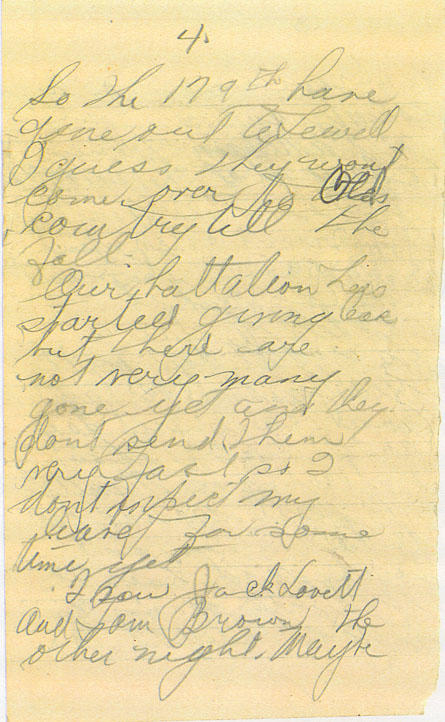 4.
So the 179th have
gone out to Sewell
I guess they wont
come over to this
country till the
fall.
Our battalion has
started giving lea
but there are
not very many
gone yet and they
dont send them
very fast so I
dont expect my
leave for some
time yet
I saw Jack Lovett
and Tom Brown the
other night. Maybe